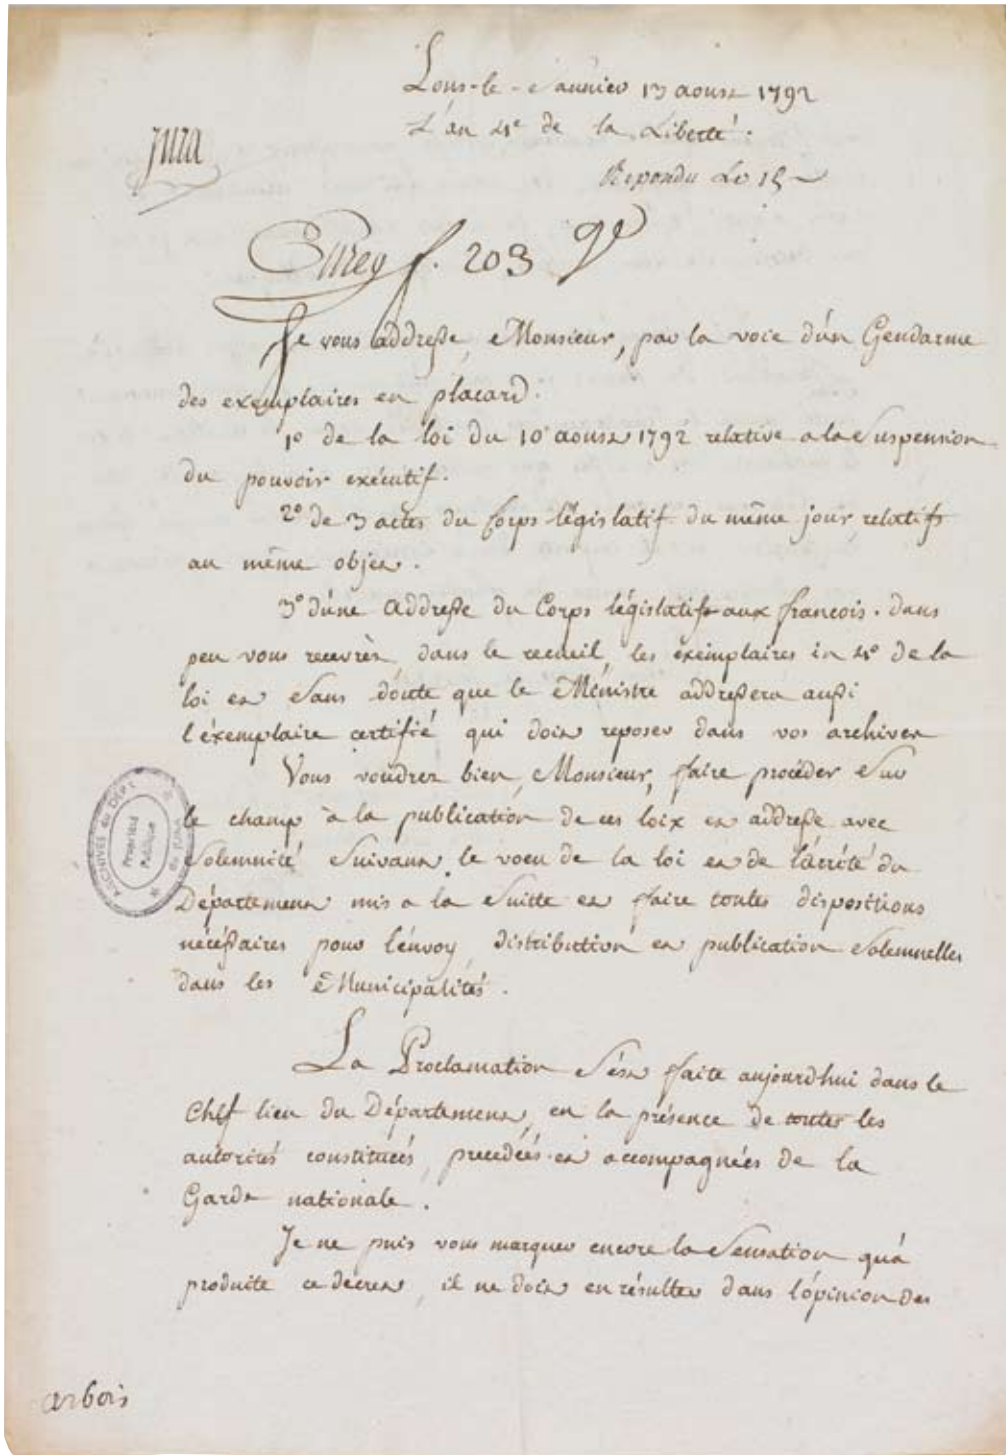 Lons-le-Saunier 13 aoust 1792
L'an 4e de la Liberté.
Jura
Repondu le 15
Enreg f. 203
Je vous addresse, Monsieur, par la voie d'un Gendarme
des exemplaires en placard.
1o de la loi du 10 aoust 1792 relative a la Suspension
du pouvoir exécutif.
2o de 3 actes du Corps législatif du même jour, relatifs
au même objet.
3o d'une addresse du Corps législatif aux francois. dans
peu vous recevrès, dans le recueil, les exémplaires in 4o de la
loi et Sans doute que le Ministre addressera aussi
l'éxemplaire certifié qui doit reposer dans vos archives
Vous voudrez bien, Monsieur, faire procéder Sur
le champ à la publication de ces loix et addresse avec
Solemnité Suivant le voeu de la loi et de l'arrété du
Département mis a la Suitte et faire toutes dispositions
nécéssaires pour l'envoy, distribution et publication Solemnelles
dans les Municipalités.
ARCHIVES du DEPT du JURA
Propriété
Publique
La Proclamation S'est faite aujourd'hui dans le
Chef lieu du Département, en la présence de toutes les
autorités constituées, precédées et accompagnées de la
Garde nationale.
Je ne puis vous marquer encore la Sensation qu'a
produite ce décret, il ne doit en résulter dans l'opinion des
arbois